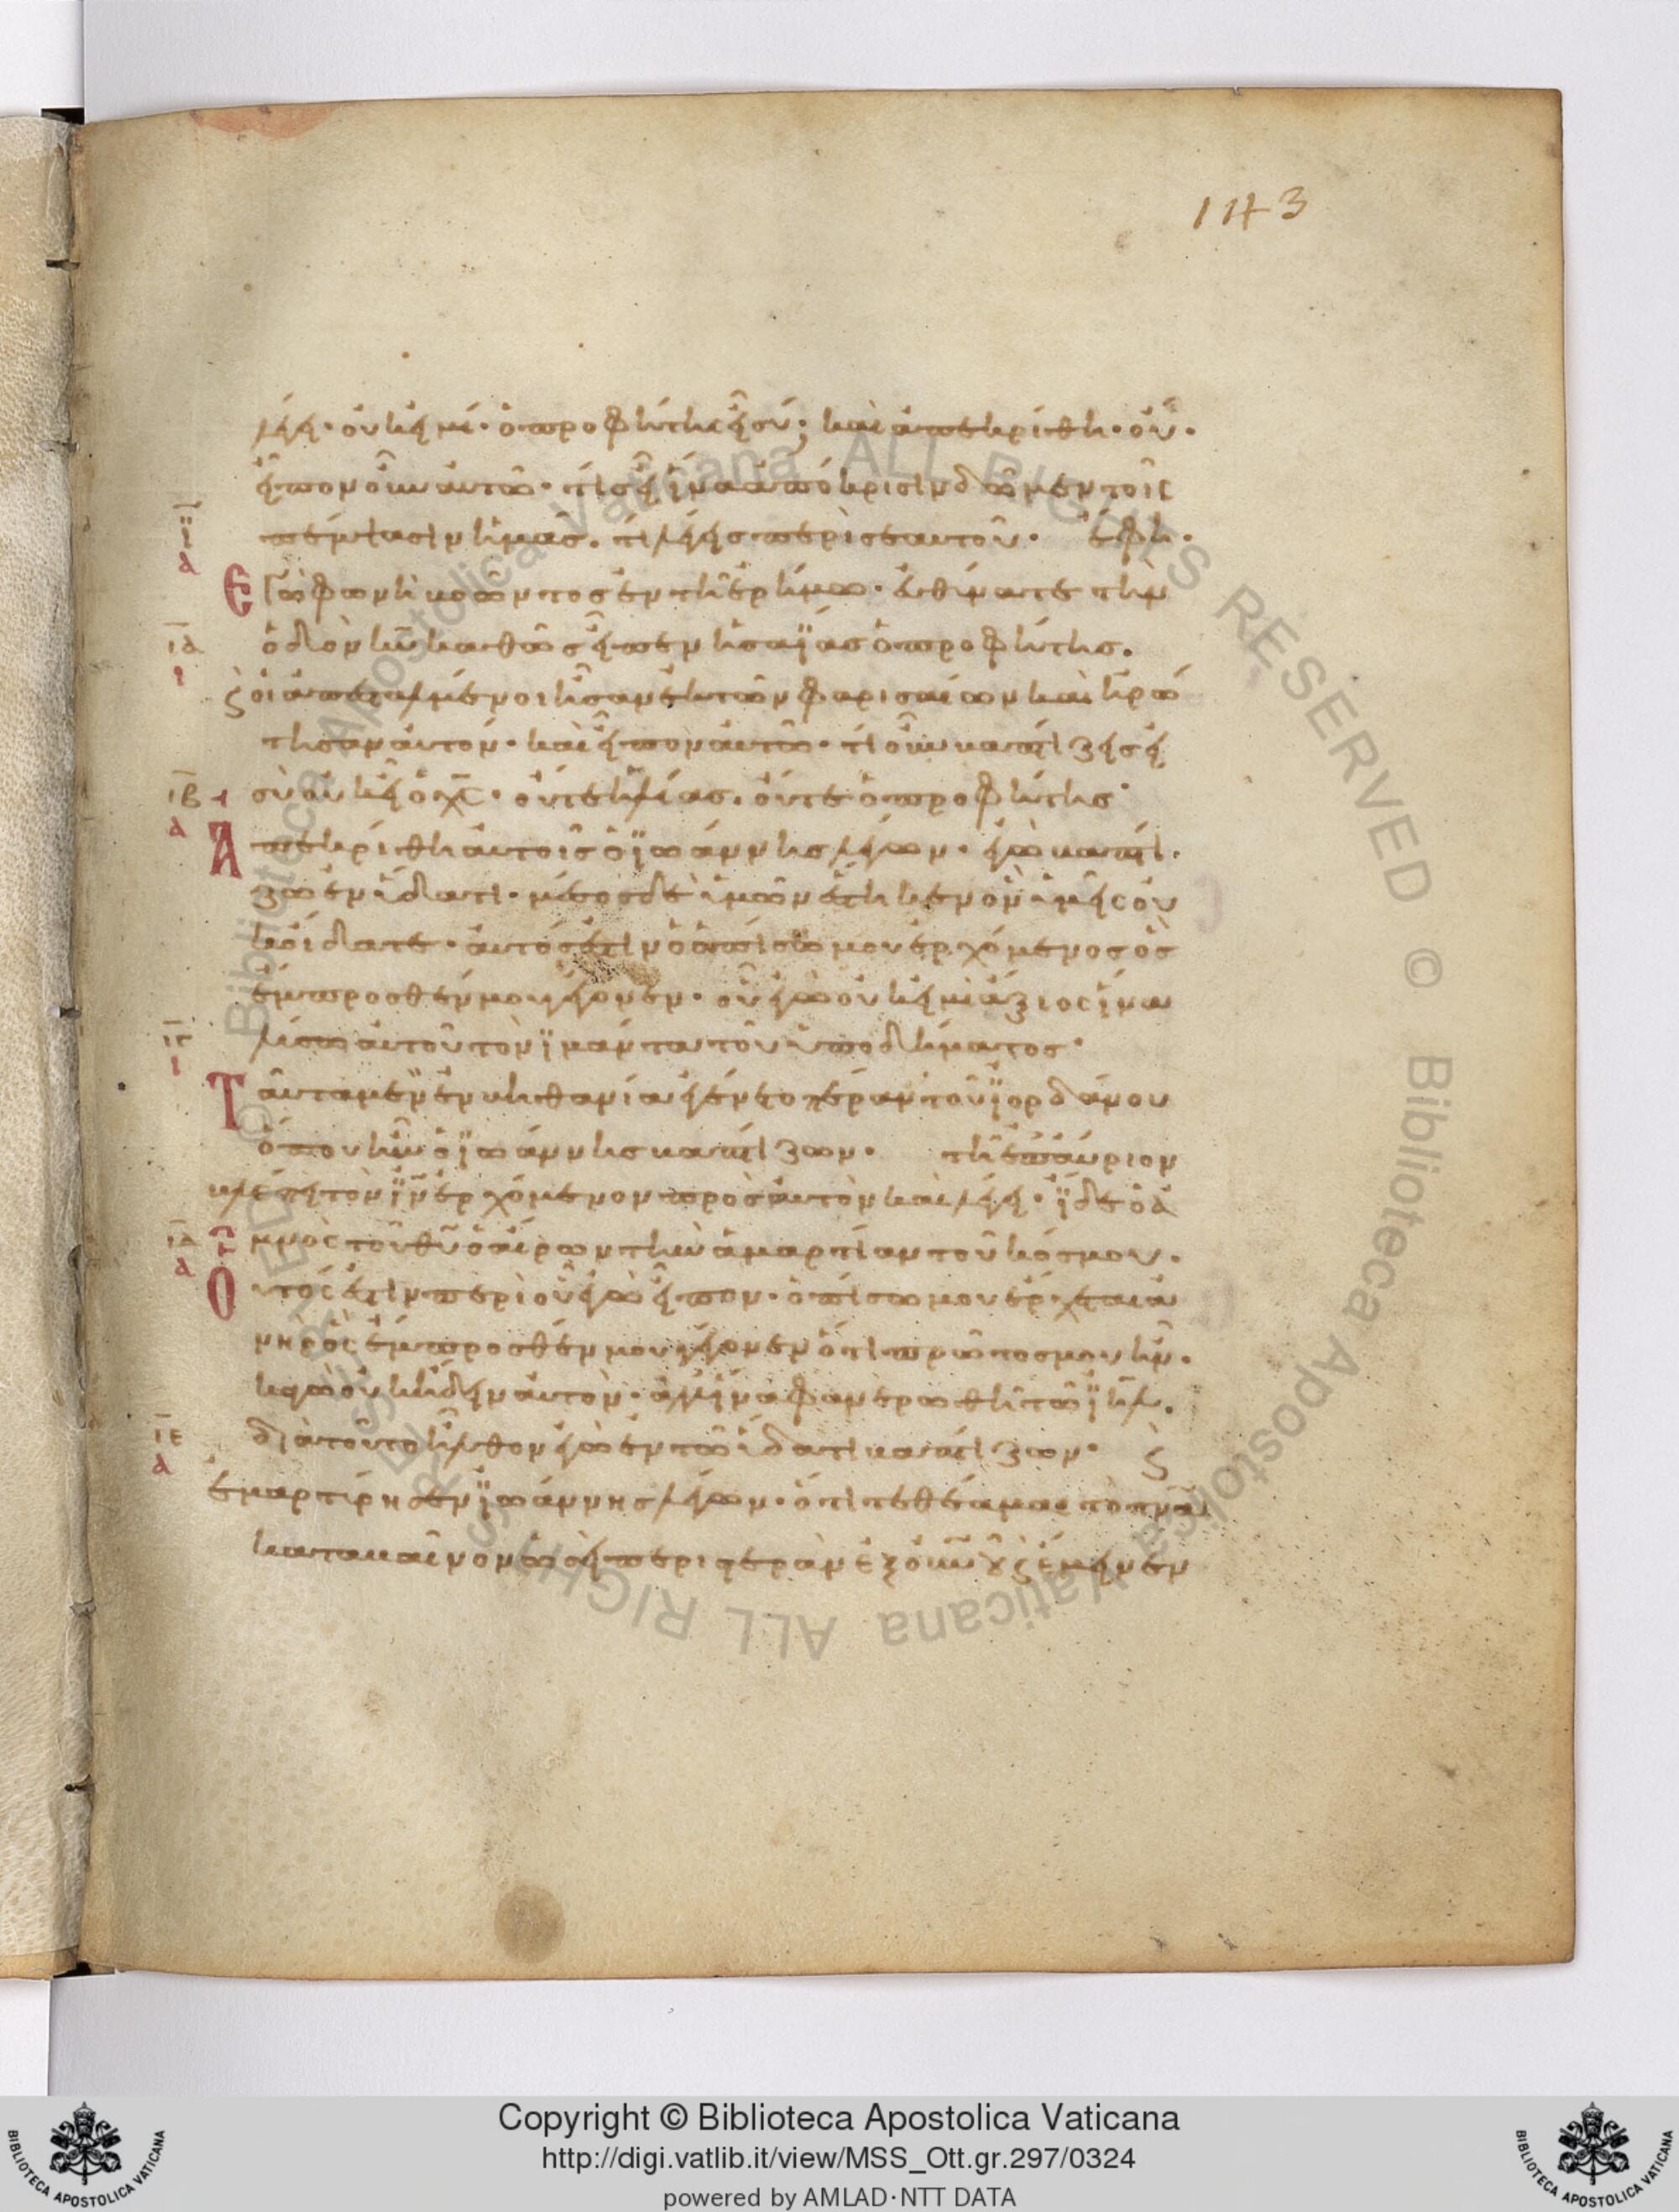 143
λέγει· οὐκ εἰμί· ὁ προφήτης εἶ σύ; καὶ ἀπεκρίθη· οὔ·
εἶπον οὖν αὐτῶ· τίς εἶ ἵνα ἀπόκρισιν δῶμεν τοῖς
πέμψασιν ἡμᾶς. τί λέγεις περὶ σεαυτοῦ· ἔφη·
ῑ
α
Ἐγὼ φωνὴ βοῶντος ἐν τῆ ἐρήμω· εὐθύνατε τὴν
ὁδὸν κ̅υ̅ καθὼς εἶπεν ἡσαΐας ὁ προφήτης.
ια
ι
ϛ οἱ ἀπεσταλμένοι ἦσαν ἐκ τῶν φαρισαίων καὶ ἠρώ
τησαν αὐτόν· καὶ εἶπον αὐτῶ· τί οὖν βαπτίζεις εἰ
σὺ οὐκ εἶ ὁ χ̅ς̅· οὔτε ἠλίας. οὔτε ὁ προφήτης·
ιβ
α
Ἀπεκρίθη αὐτοῖς ὁ ϊωάννης λέγων· ἐγὼ βαπτί
ζω ἐν ὕδατι· μέσος δὲ ὑμῶν ἕστηκεν ὃν ὑμεῖς οὐ
κ οἴδατε· αὐτός ἐστιν ὁ ὀπίσω μου ἐρχόμενος ὃς
ἔμπροσθέν μου γέγονεν· οὗ ἐγὼ οὐκ εἰμὶ ἄξιος ἵνα
λύσω αὐτοῦ τὸν ϊμάντα τοῦ ὑποδήματος·
ιγ
ι
Ταῦτα μὲν ἐν βηθανία ἐγένετο πέραν τοῦ ϊορδάνου
ὅπου ἦν ὁ ϊωάννης βαπτίζων· τῆ ἐπαύριον
βλέπει τὸν ι̅ν̅ ἐρχόμενον πρὸς αὐτὸν καὶ λέγει· ϊδε ὁ ἀ
μνὸς τοῦ θ̅υ̅ ὁ αἴρων τὴν ἁμαρτίαν τοῦ κόσμου.
ιδ
α
Οὗτός ἐστιν περὶ οὗ ἐγὼ εἶπον· ὀπίσω μου ἔρχεται ἀ
νὴρ ὃς ἔμπροσθέν μου γέγονεν ὅτι πρῶτος μου ἦν.
κἀγὼ οὐκ ἤδειν αὐτόν· ἀλλ' ἵνα φανερωθῆ τῶ ι̅η̅λ̅.
διὰ τοῦτο ἦλθον ἐγὼ ἐν τῶ ὕδατι βαπτίζων· ϛ
ιε
α
ἐμαρτύρησεν ϊωάννης λέγων· ὅτι τεθέαμαι τὸ π̅ν̅α̅
καταβαῖνον ὡσεὶ περιστερὰν ἐξ ο̅υ̅ν̅ο̅υ̅ ϛ ἔμεινεν
Copyright © Biblioteca Apostolica Vaticana
http://digi.vatlib.it/view/MSS_Ott.gr.297/0324
powered by AMLAD·NTT DATA